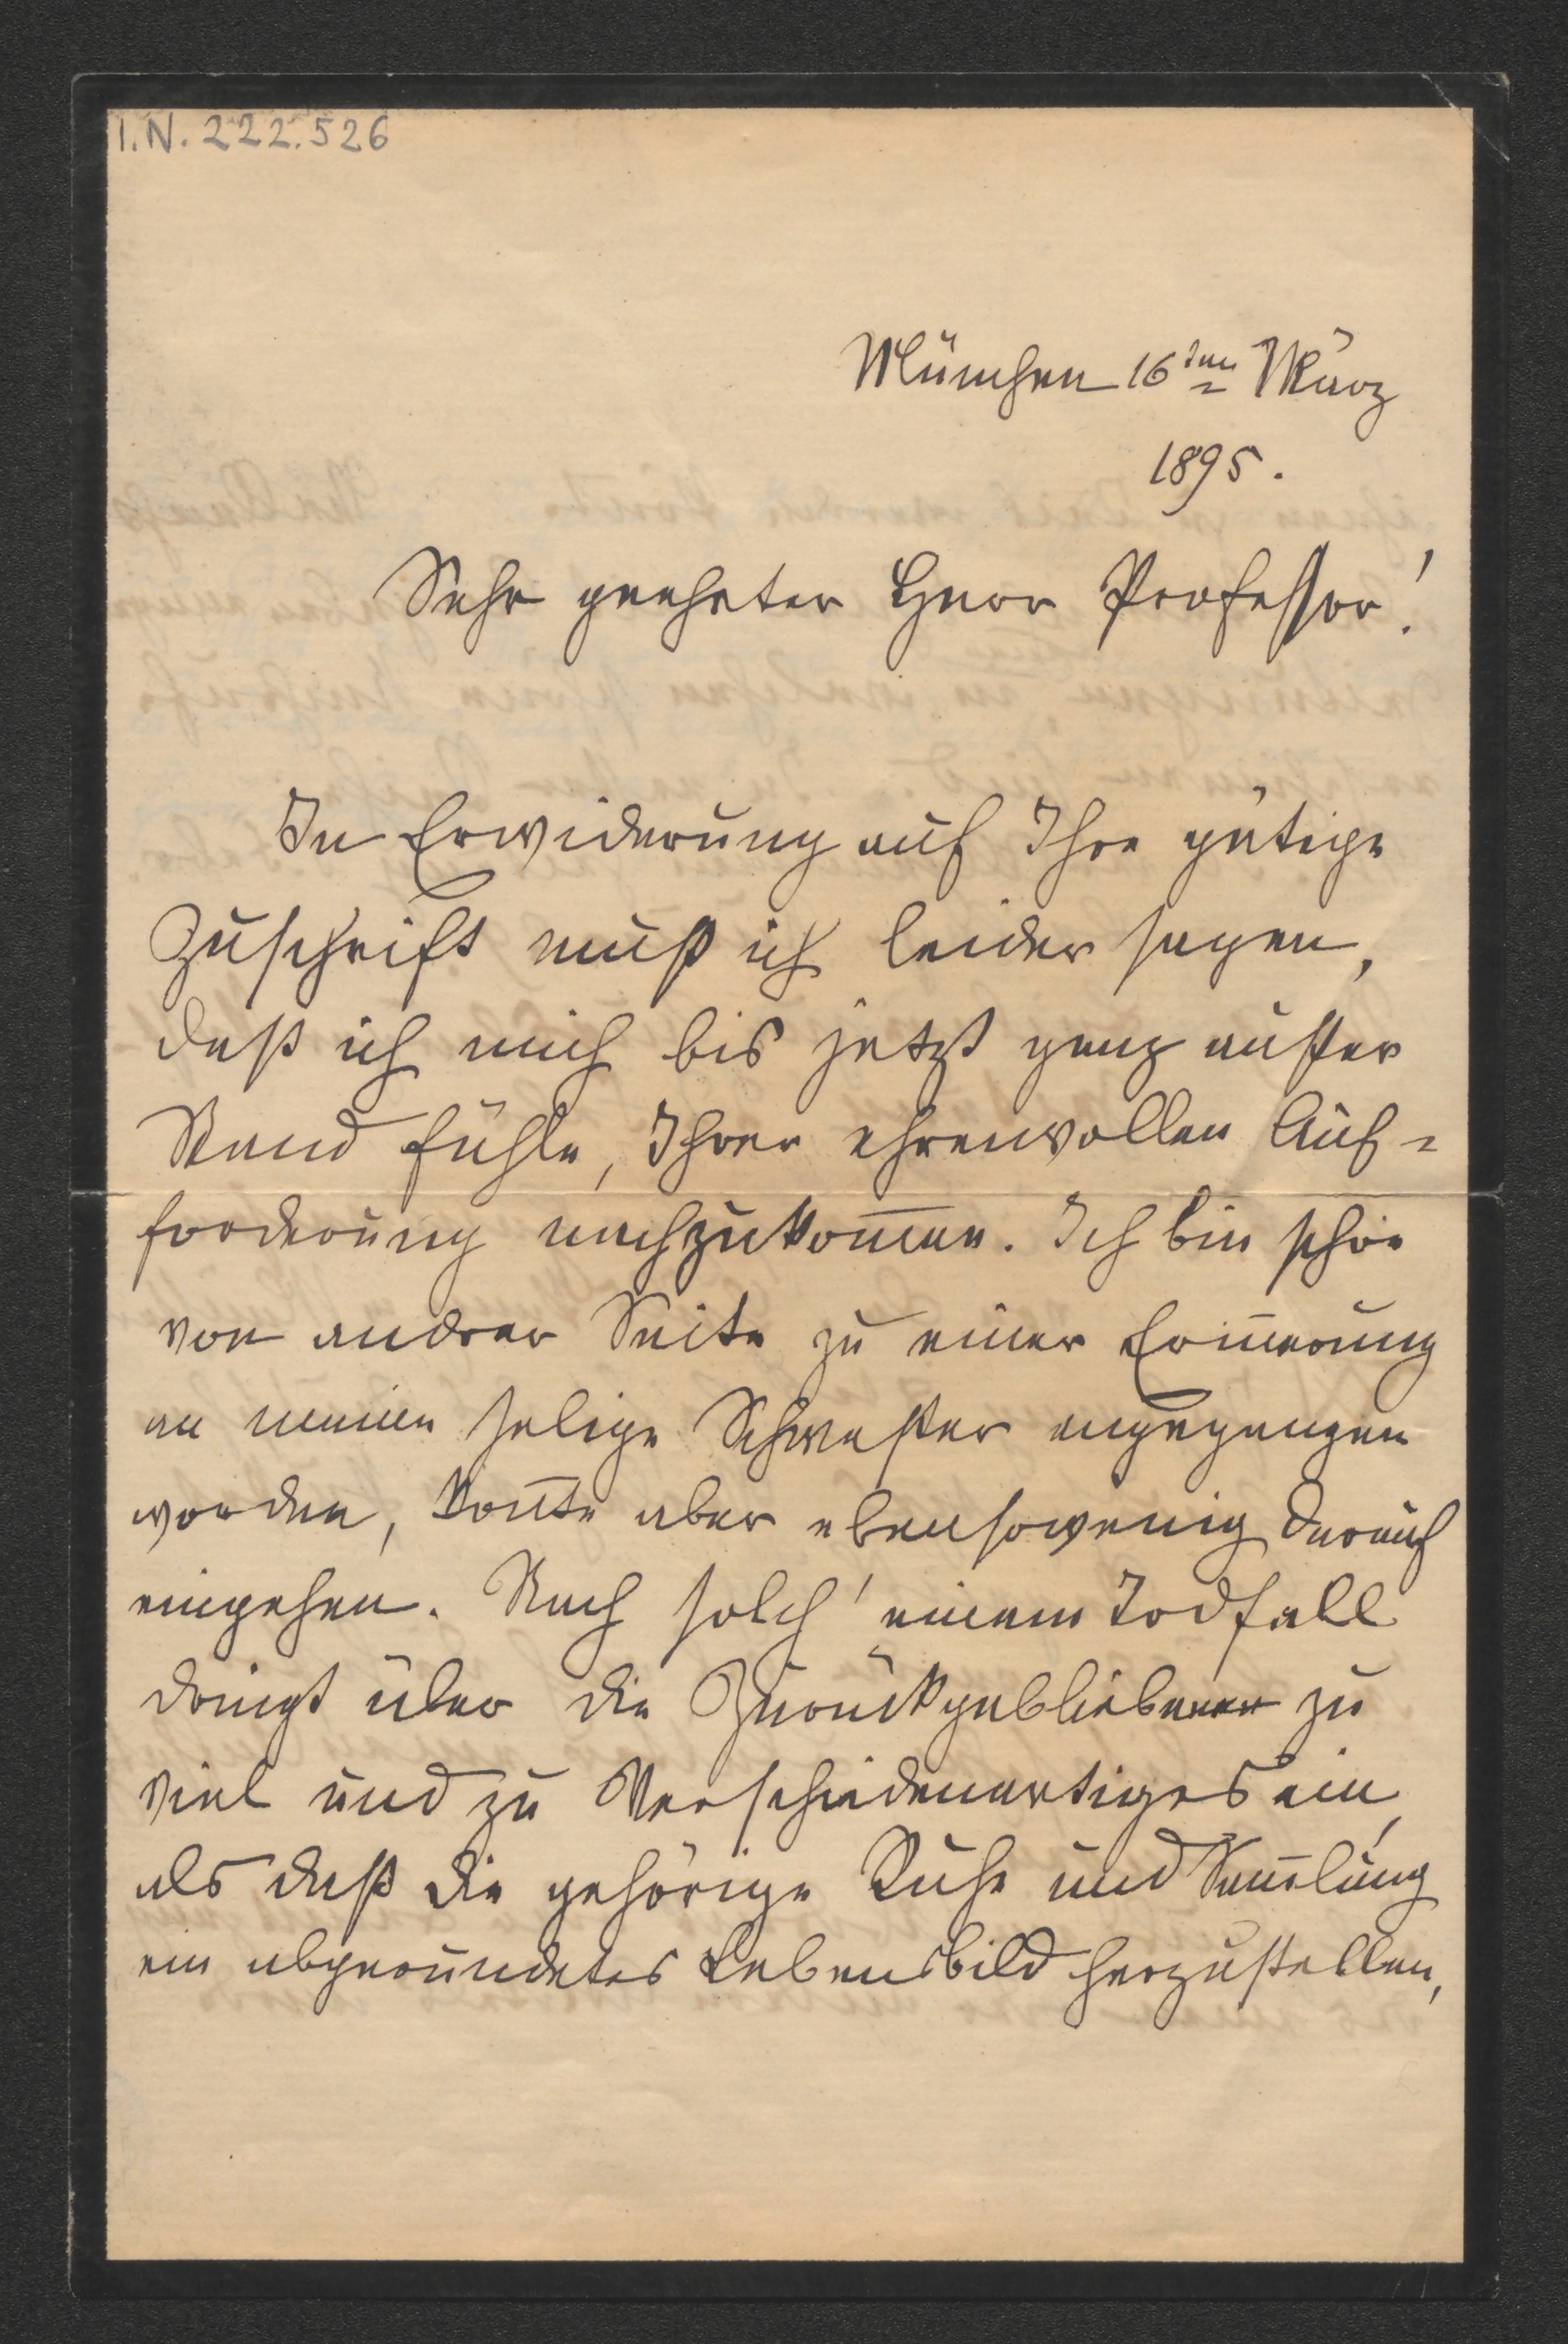 I.N. 222.526
München 16ten März
1895.
Sehr geehrter Herr Professor!
In Erwiderung auf Ihre gütige
Zuschrift muß ich leider sagen,
daß ich mich bis jetzt ganz außer
Stand fühle, Ihrer ehrenvollen Auf=
forderung nachzukom̅en. Ich bin schon
von andrer Seite zu einer Erin̅erung
an meine selige Schwester angegangen
worden, kon̅te aber ebensowenig darauf
eingehen. Nach solch' einem Todfall
dringt über die Zurückgebliebenen zu
viel und zu Verschiedenartiges ein,
als daß die gehörige Ruhe und Sam̅lung
ein abgerundetes Lebensbild herzustellen,